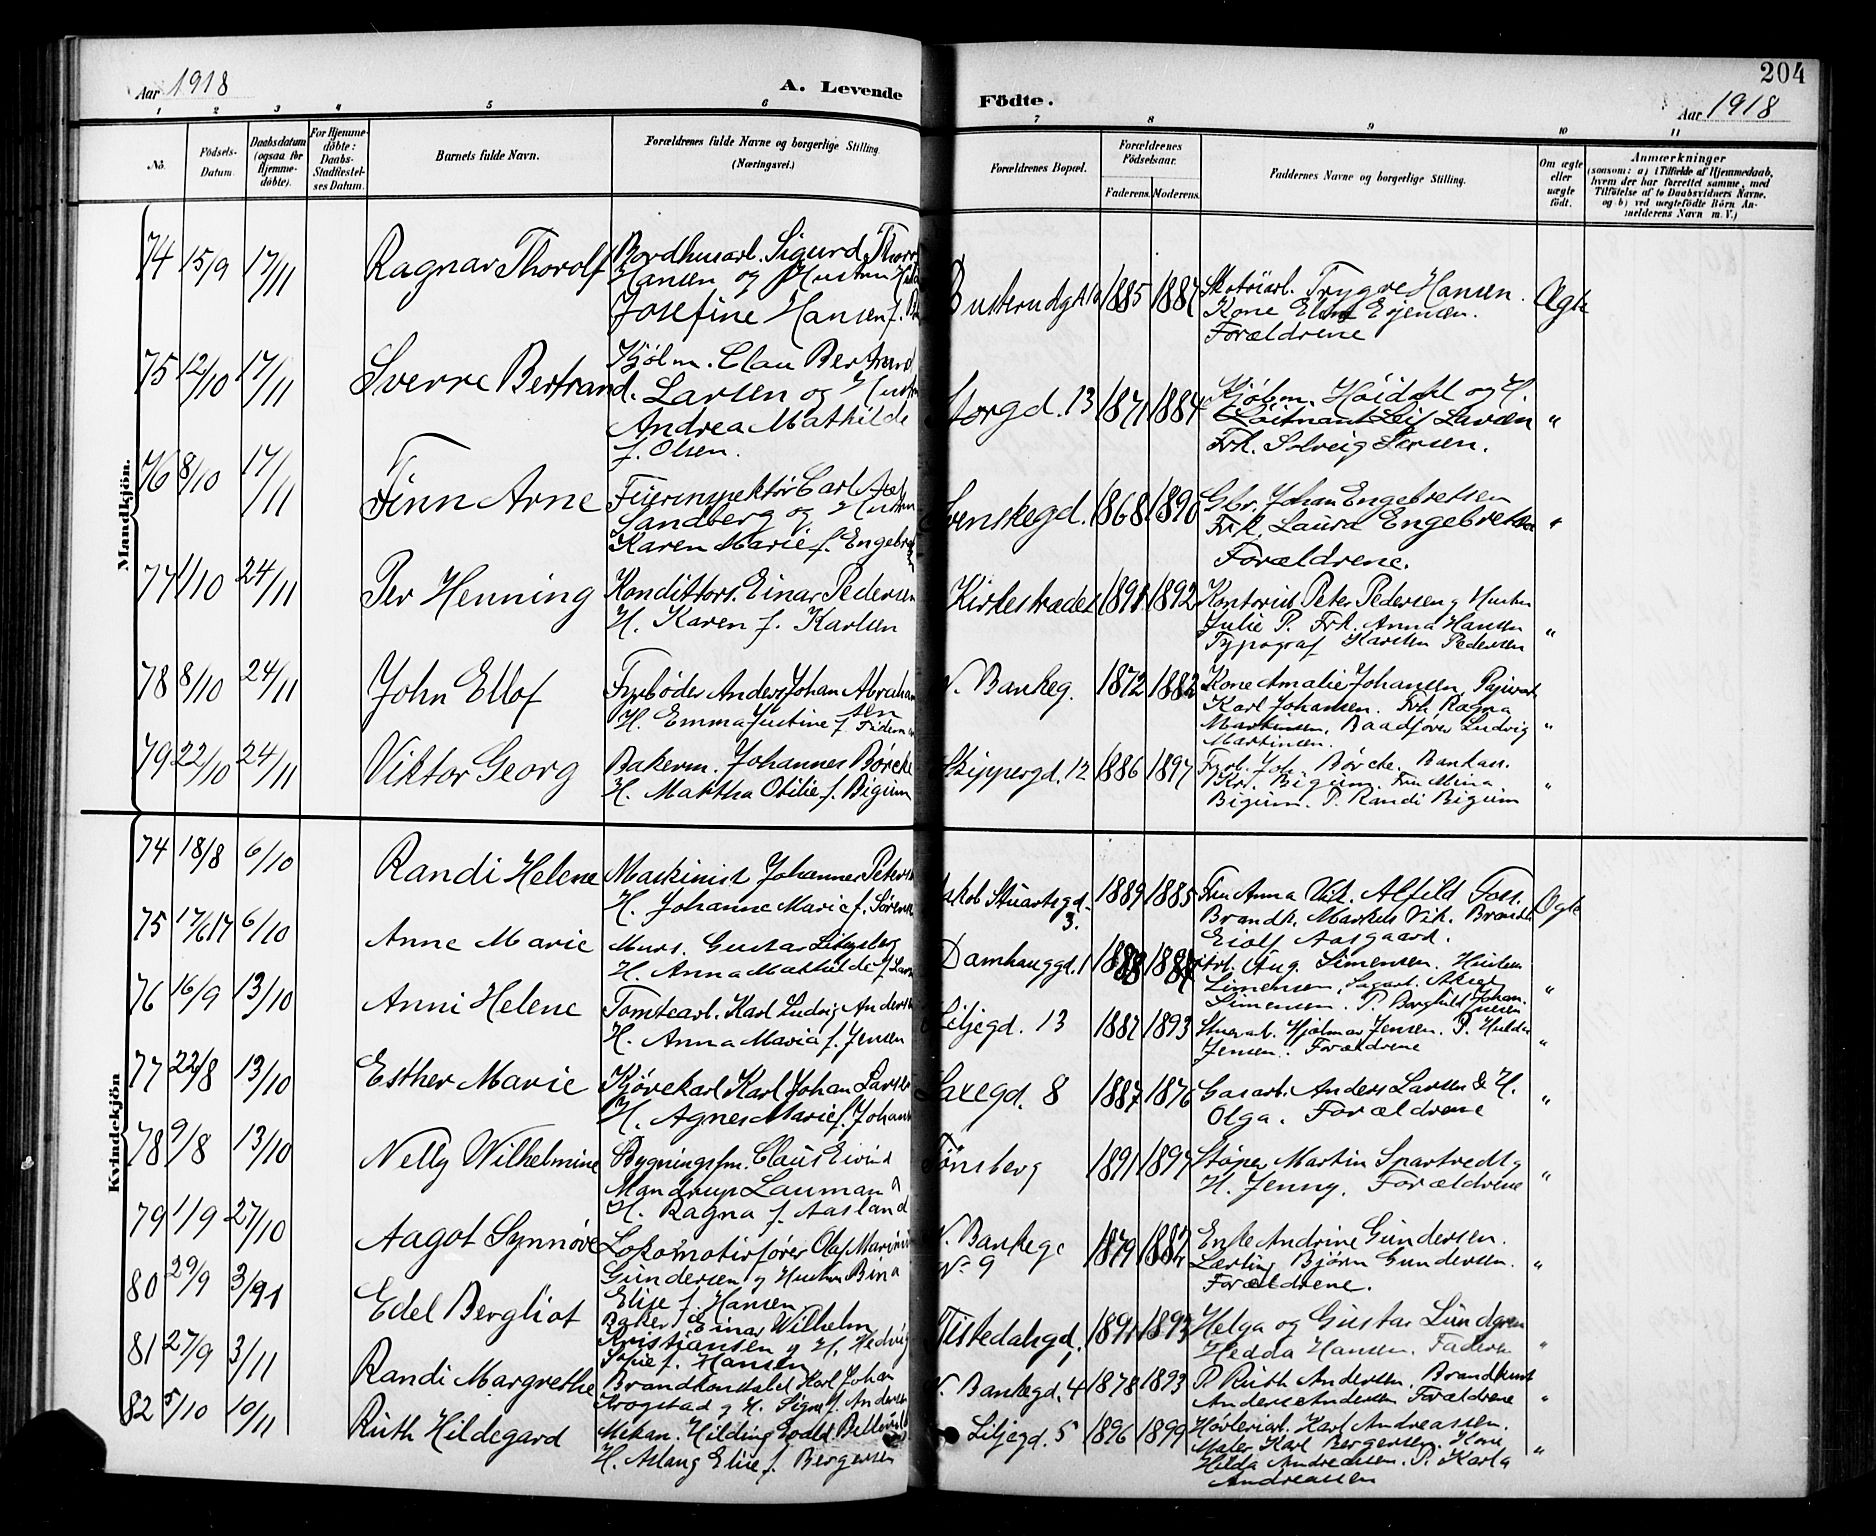 204
Aar 1918
A. Levende
Födte.
Aar 1918
1 2 3 4 5 6 7 8 9 10 11
No.
Födsels-Datum.
Daabsdatum (ogsaa for Hjemme-döbte).
For Hjemme-döbte: Daabs-Stadfæstel-ses Datum.
Barnets fulde Navn.
Forældrenes fulde Navne og borgerlige Stilling (Næringsvei.)
Forældrenes Bopæl.
Forældrenes Födselsaar.
Faderens. Moderens.
Faddernes Navne og borgerlige Stilling.
Om ægte eller uægte födt.
Anmærkninger
(saasom: a) i Tilfælde af Hjemmedaab,
hvem der har forrettet samme, med
Tilföielse af to Daabsvidners Navne.
og b) ved uægtefödte Börn An-
melderens Navn m. V.)
Mandkjön.
74 15/9 17/11 Ragnar Thorolf
Bordhusarb. Sigurd
Hansen og Hustru
Josefine Hansen f.
1885 1887
Trygve Hansen.
Kone
Forældrene
Ægte
75 12/10 17/11 Sverre Bertrand.
Kjøbm. Clau Bertrand
Larsen og Hustru
Andrea Mathilde
f. Olsen.
Storgd. 13 1871 1884
Kjøbm. Høidahl og H.
Løitnant Leif Larsen
Frk. Solveig Larsen.
"
76 8/10 17/11 Finn Arne
Feierinspektör Carl
Sandberg og Hustru
Karen Marie f. Engebre
Svenskegd. 1868 1890
Gbr. Johan Engebretsen
Frk. Laura Engebretsen
Forældrene.
"
77 1/10 24/11 Per Henning
Konditors. Einar Pedersen
H. Karen f. Karlsen
Kirkestrædet 1891 1892
Kontorist Peter Pedersen og Hustru
Julie P. Frk. Anna Hansen
Typograf Karsten Pedersen
"
78 8/10 24/11 John Ellof
Fyrbøder Anders Johan Abraham
sen
H. Emma Justine f.
N. Bankeg. 1872 1882
Kone Amalie Johansen,
Karl Johansen. Frk. Ragna
Martinsen, Baadfører Ludvig
Martinsen.
"
79 22/10 24/11 Viktor Georg
Bakerm. Johannes Børcke
H. Martha Otilie f. Bigum
Skippergd. 12 1886 1897
Joh. Børcke.
Bigum. Fru Mina
Bigum. P. Randi Bigum
"
Kvindekjön
74 18/8 6/10 Randi Helene
Maskinist Johannes Peters
H. Johanne Marie f. Sørens
Jakob Stuartsgd. 3. 1889 1885
Fru Anna Vik. Alfild Foss.
Brandk. Markus Vik.
Eiolf Aasgaard.
Ægte
75 17/6 17 6/10 Anne Marie
Murs. Gustav
H. Anna Mathilde f.
Damhauggd. 1
Arb. Aug. Simensen. Hustru
Simensen, Sagarb. Aksel
Simensen. P. Borghild Johan-
nesen
"
76 16/9 13/10 Anni Helene
Tomtearb. Karl Ludvig Anders
H. Anna Maria f. Jensen
Liljegd. 13 1887 1893
Stuerarb. Hjalmar Jensen. P. Hulda
Jensen. Forældrene
"
77 22/8 13/10 Esther Marie
Kjørekarl Karl Johan Larsen
H. Agnes Marie f. Johans
8 1887 1876
Gasarb. Anders Larsen & H.
Olga. Forældrene
"
78 9/8 13/10 Nelly Wilhelmine
Bygningsfm. Claus Eivind
Mandrup Lauman og
H. Ragna f. Aasland
Tönsberg 1891 1897
Støper Martin
H. Jenny. Forældrene
"
79 1/9 27/10 Aagot Synnöve
Lokomotivfører Olaf Marinius
Gundersen og Hustru Bina
Elise f. Hansen
N. Bankegd
N. 9 1879 1882
Enke Andrine Gundersen.
Lærling Bjørn Gundersen.
Forældrene.
"
80 29/9 3/11 Edel Bergliot
Baker Einar Wilhelm
Kristiansen og H. Hedvig
Sofie f. Hansen
Tistedalsgd. 1891 1893
Helga og Gustav Lundgren
Hedda Hansen. Faderen
"
81 27/9 3/11 Randi Margrethe
Brandkonstabel Karl Johan
Krogstad og H. Signe f. Andersen
N. Bankegd. 4 1878 1893
P. Ruth Andersen, Brandkonst
Anders Andersen Forældrene
"
82 5/10 10/11 Ruth Hildegard
Mekan. Hilding
H. Aslaug Elise f. Bergersen
Liljegd. 5 1896 1899
Høvleriarb. Karl Andreassen.
Maler Karl Bergersen. Kone
Hilda Andreassen. P. Karla
Andreassen
"